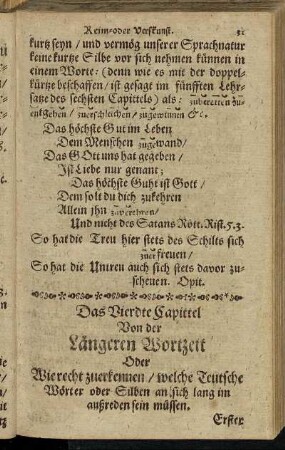 Reim-oder Verskunst. 51
kurtz seyn / und vermög unserer Sprachnatur
keine kurtze Silbe vor sich nehmen künnen in
einem Worte: (denn wie es mit der doppel-
kürtze beschaffen / ist gesagt im fünfften Lehr-
satze des sechsten Capittels) als: zubetretten zu-
entgehen / zuerschleichen / zugewinnen &c.
Das höchste Gut im Leben
Dem Menschen zugewand /
Das GOtt uns hat gegeben /
Ist Liebe nur genant;
Das höchste Guht ist Gott /
Dem solt du dich zukehren
Allein ihn zuverehren /
Und nicht des Satans Rott. Rist. 5. 3.
So hat die Treu hier stets des Schilts sich
zuerfreuen /
So hat die Untreu auch sich stets davor zu-
scheuen. Opit.
Das Vierdte Capittel
Von der
Längeren Wortzeit
Oder
Wie recht zuerkennen / welche Teutsche
Wörter oder Silben an sich lang im
außreden sein müssen.
Erster